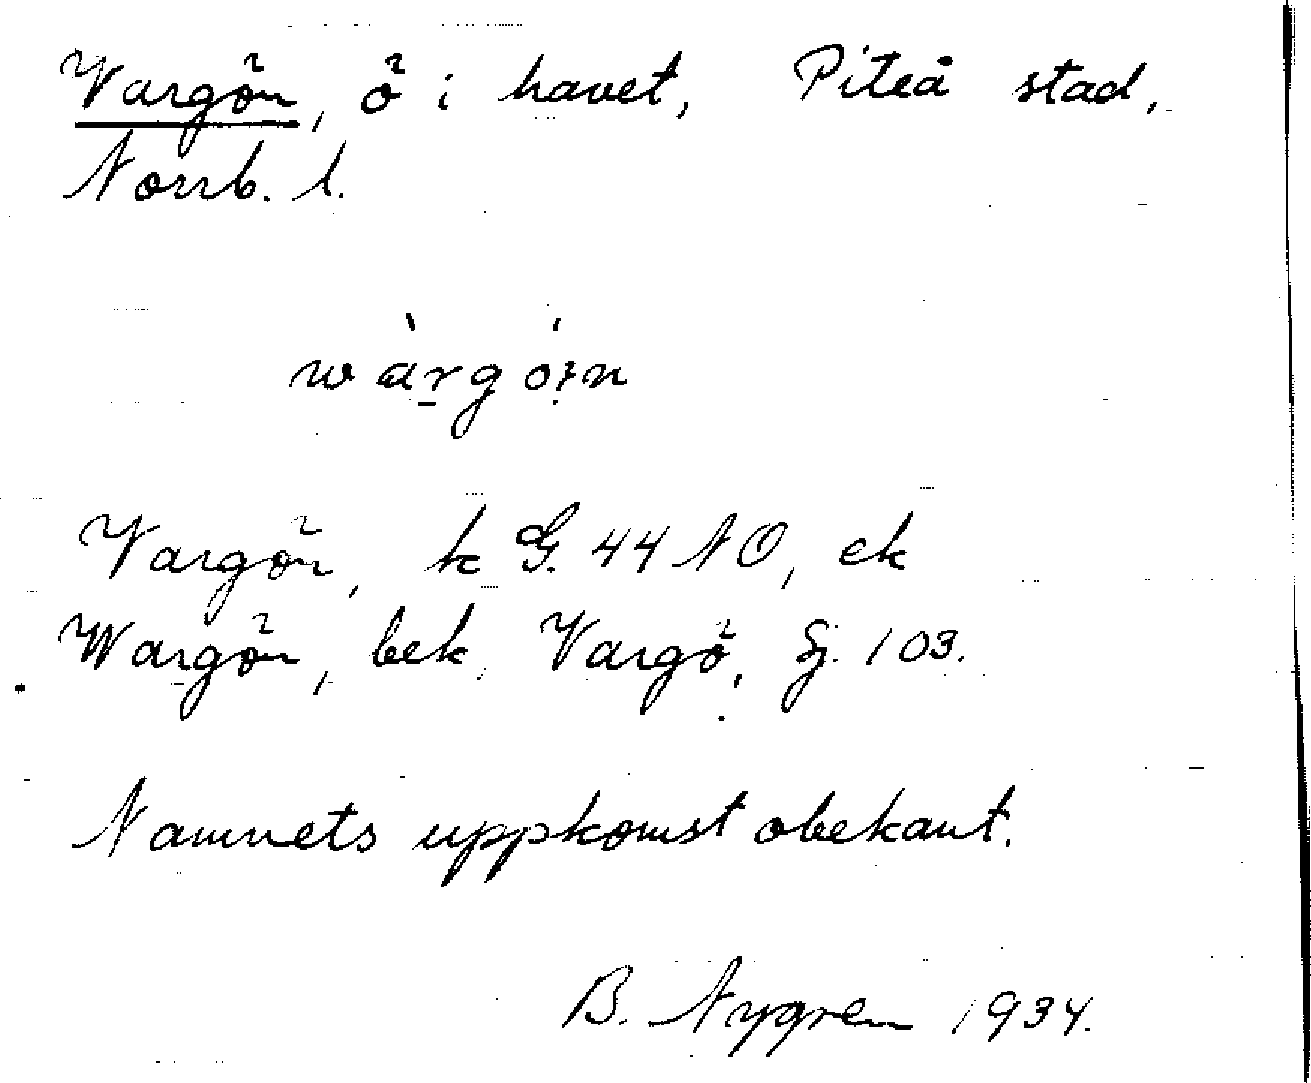 Vargön, ö i havet, Piteå stad,
Norrb. l.
wàrgö́n
Vargön, k G. 44 NO, ek
Wargön, bek, Vargö, Sj. 103.
Namnets uppkomst obekant.
B. Nygren 1934.